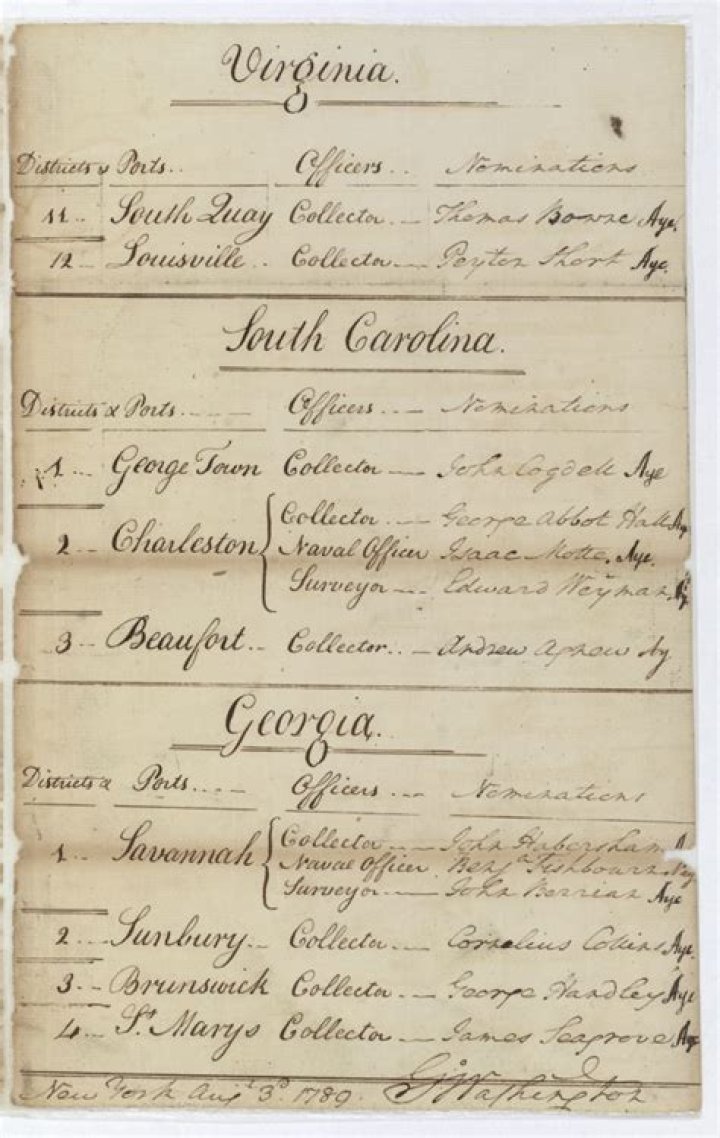 Virginia.
Districts & Ports.. Officers.. Nominations
11.. South Quay Collector Thomas Bowne Aye.
12.. Louisville.. Collector Peyton Short Aye.
South Carolina.
Districts & Ports.... Officers... Nominations
1... George Town Collector John Cogdell Aye
2... Charleston Collector George Abbot Hall Ay
Naval Officer Isaac Motte. Aye.
Surveyor... Edward Weyman.
3.. Beaufort.. Collector.. Andrew Agnew Ay
Georgia.
Districts & Ports.... Officers... Nominations
1... Savannah Collector John Habersham
Naval Officer. Benjn Fishbourn Nay
Surveyor John Berrien Aye
2... Sunbury.. Collector Cornelius Collins Aye.
3... Brunswick Collector George Handley Aye
4... St Marys Collector James Seagrove Aye
New York Augt 3d. 1789. Go Washington